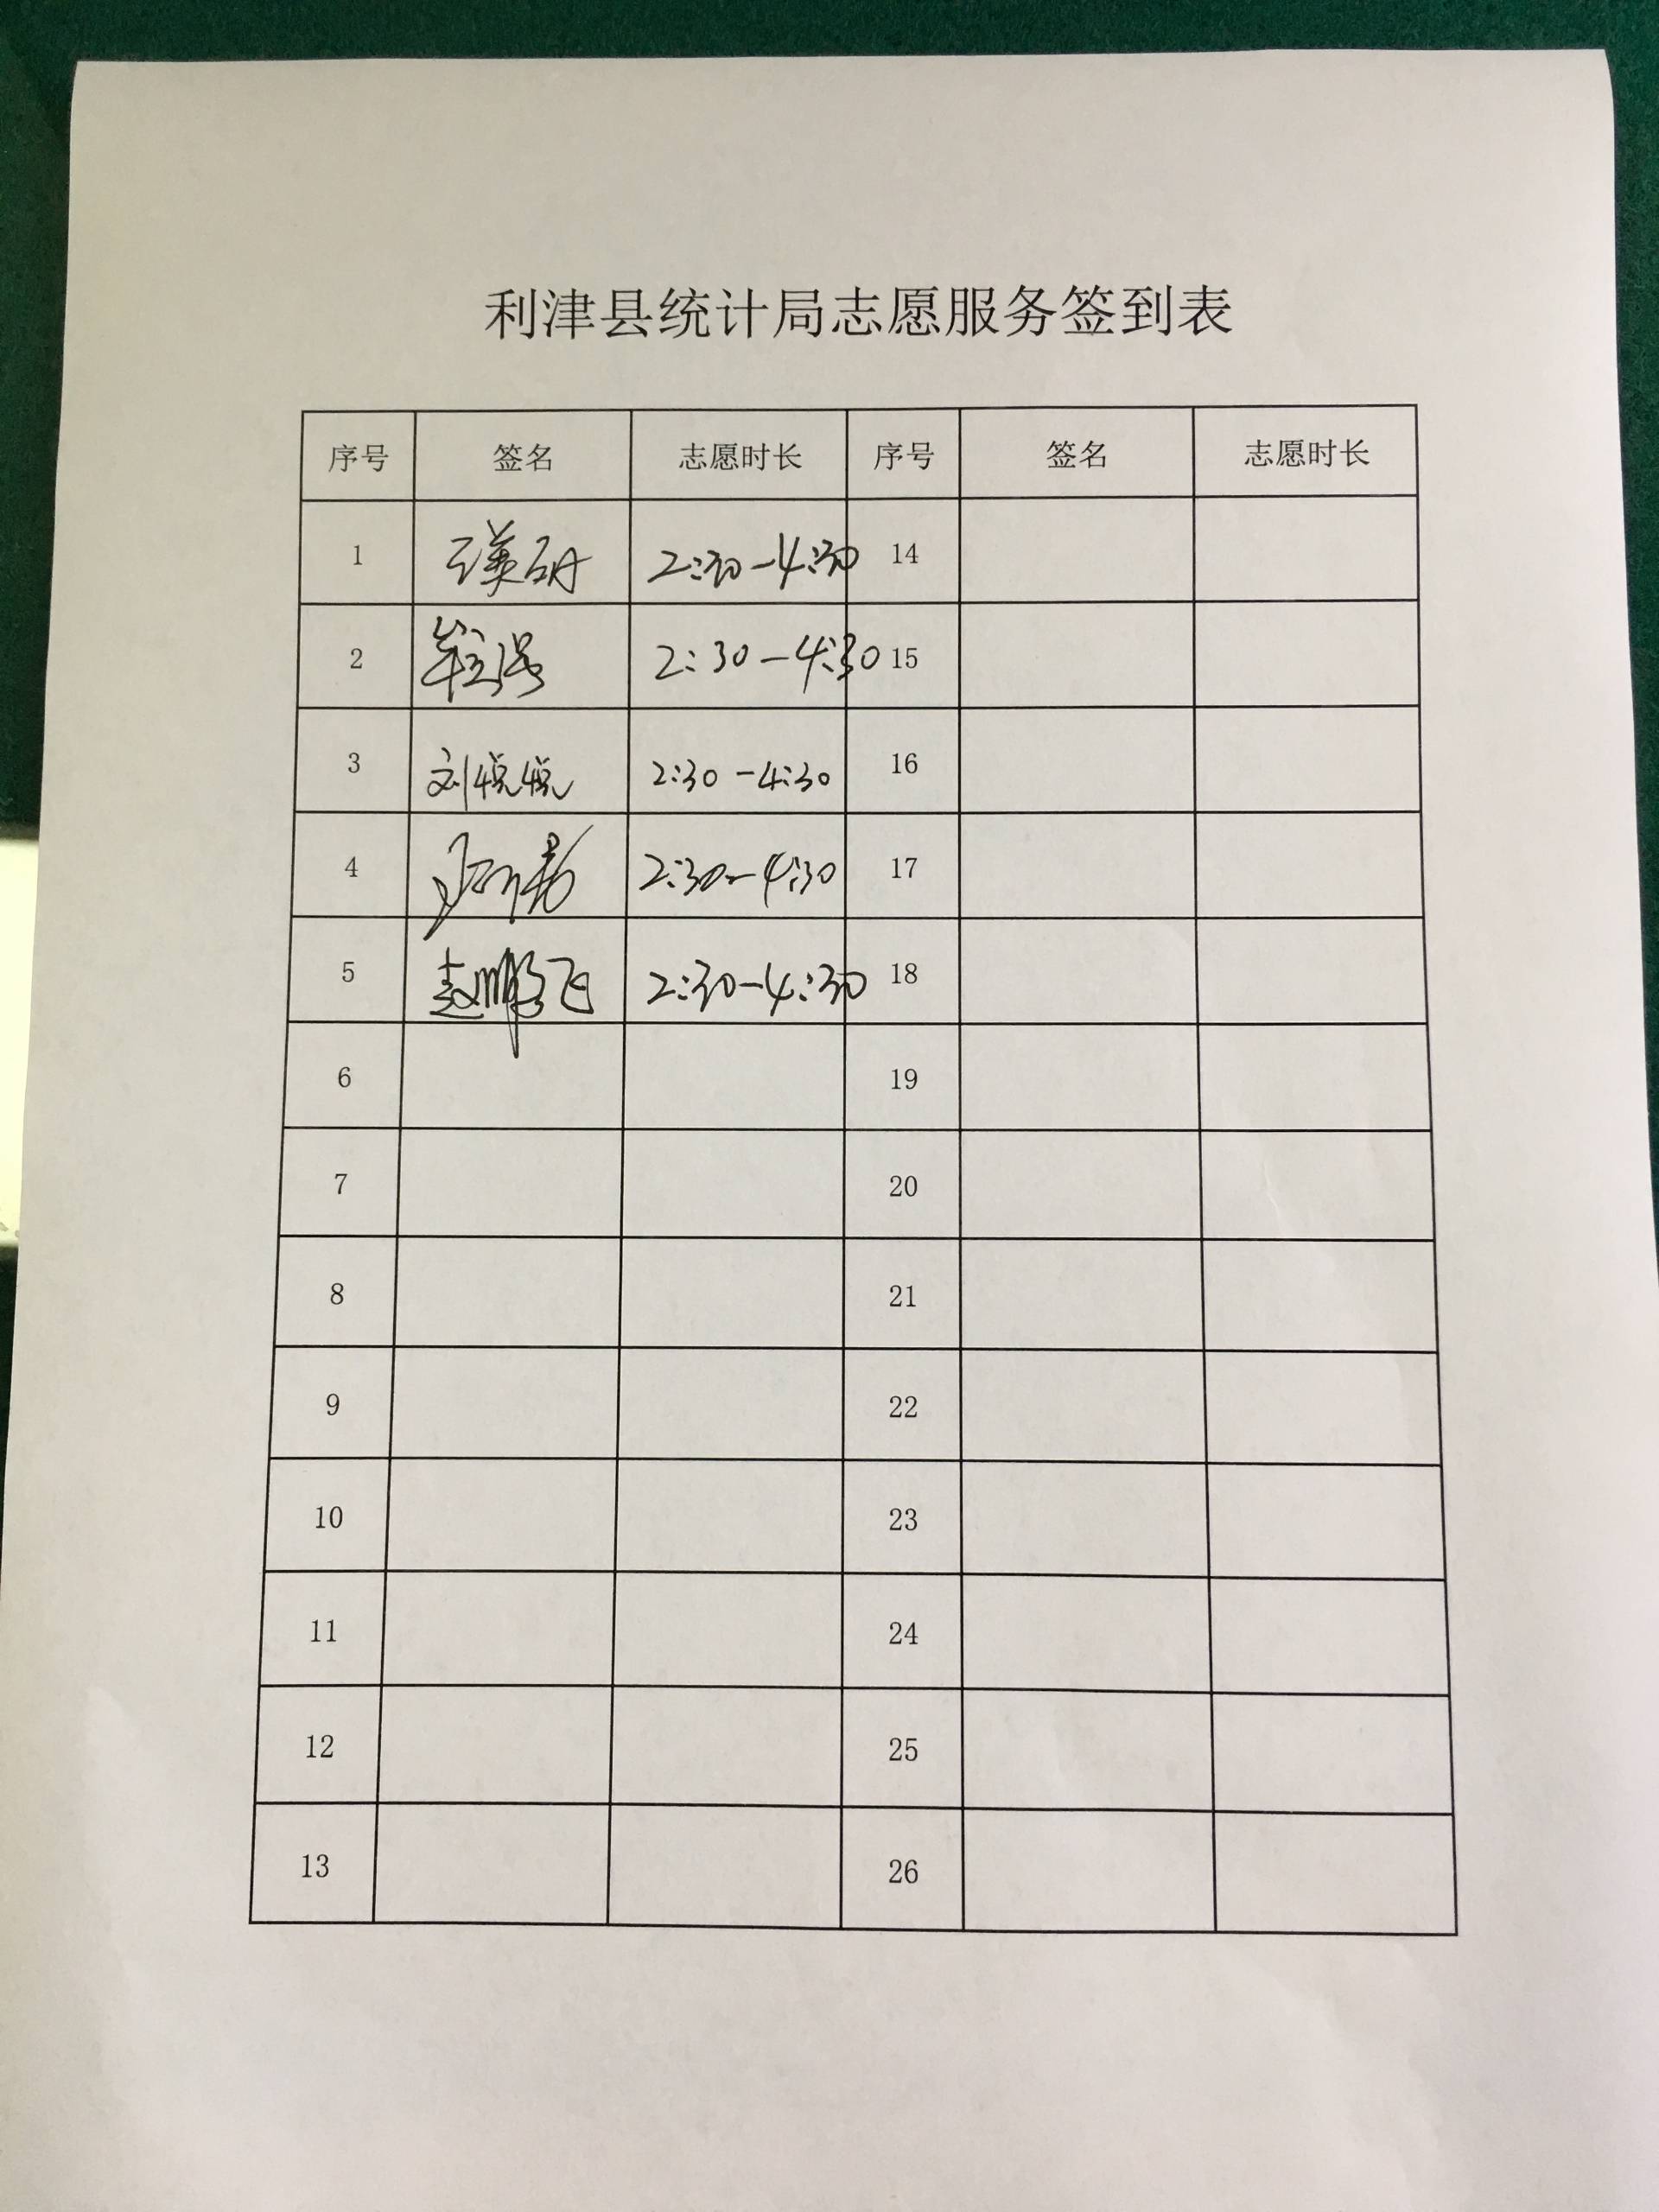 利津县统计局志愿服务签到表
序号 签名 志愿时长 序号 签名 志愿时长
1 2:30-4:30 14
2 2:30-4:30 15
3 刘悦悦 2:30-4:30 16
4 2:30-4:30 17
5 赵鹏飞 2:30-4:30 18
6 19
7 20
8 21
9 22
10 23
11 24
12 25
13 26